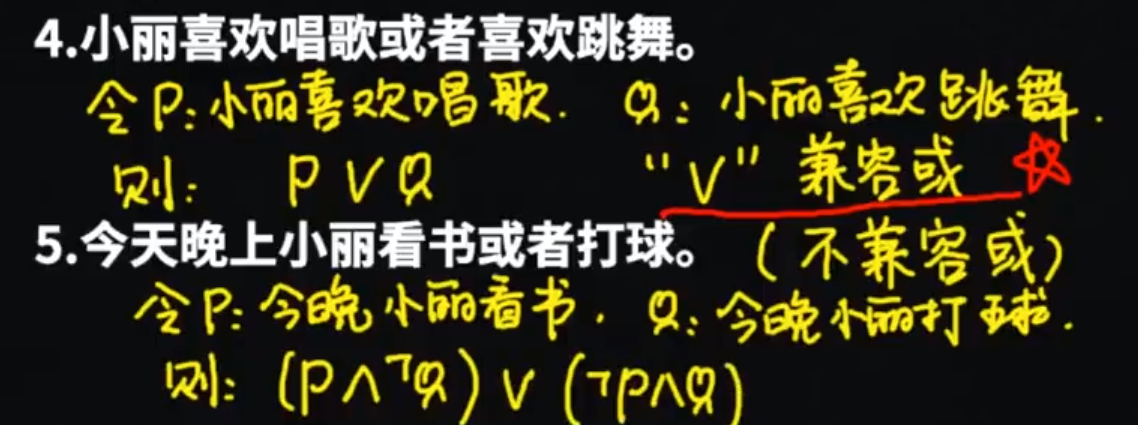 4.小丽喜欢唱歌或者喜欢跳舞。
令P:小丽喜欢唱歌. Q:小丽喜欢跳舞.
则: P∨Q "∨"兼容或
5.今天晚上小丽看书或者打球。(不兼容或)
令P:今晚小丽看书. Q:今晚小丽打球.
则:(P∧¬Q)∨(¬P∧Q)